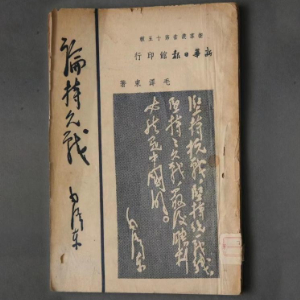 新羣叢書第十五種
新華日報館印行
毛澤東 著
論持久戰
毛澤東
堅持抗戰,堅持統一戰線,
堅持持久戰,最後勝利
必然是中國的。
毛澤東